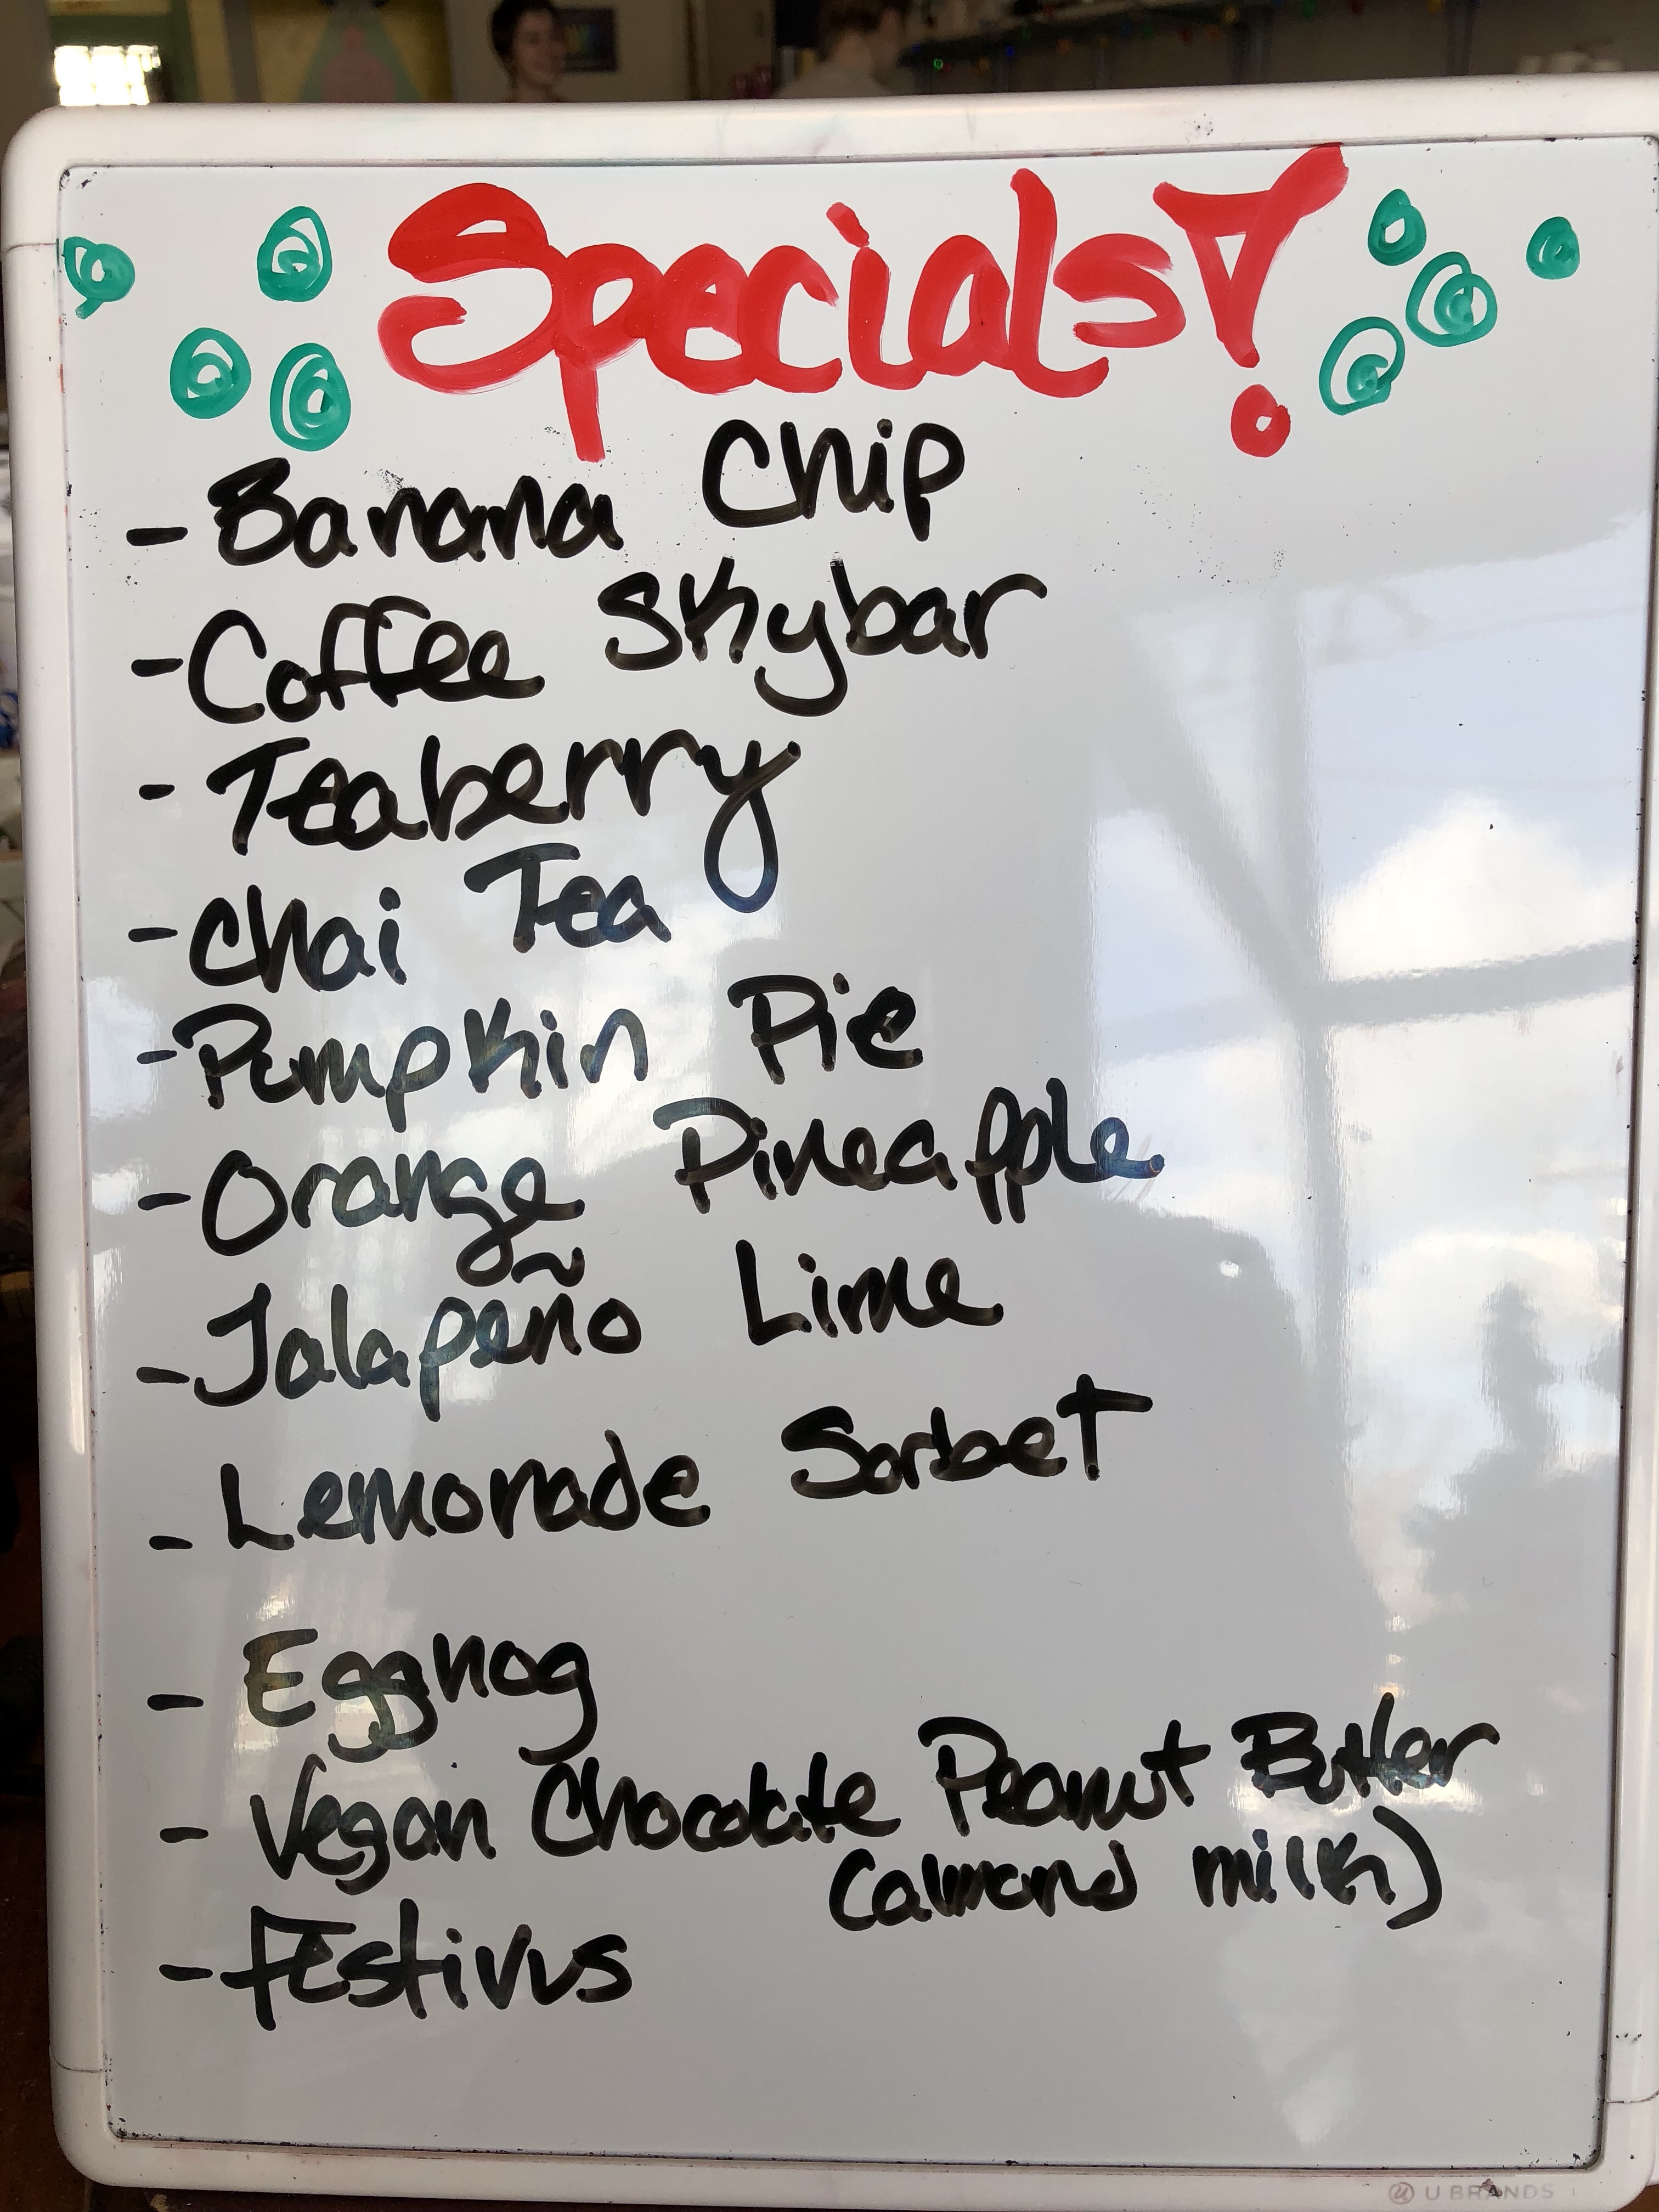 Specials!
- Banana Chip
- Coffee Skybar
- Teaberry
- Chai Tea
- Pumpkin Pie
- Orange Pineapple
- Jalapeño Lime
- Lemonade Sorbet
- Eggnog
- Vegan Chocolate Peanut Butter
(almond milk)
- Festivus
U BRANDS